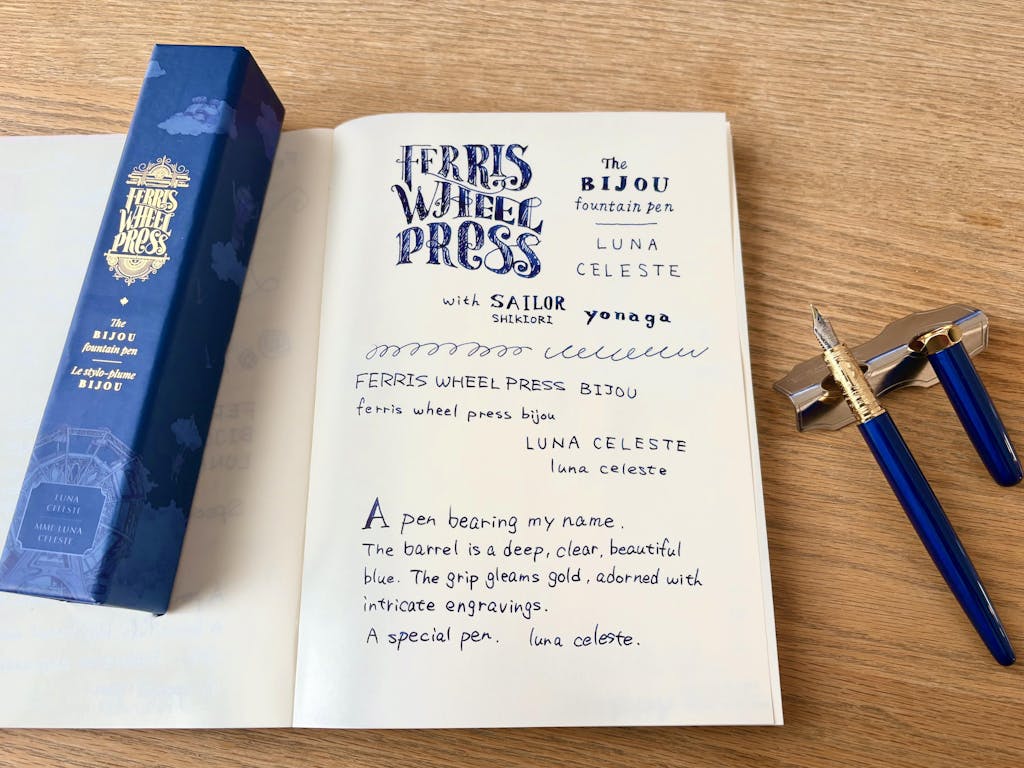 FERRIS
WHEEL
PRESS
The
BIJOU
fountain pen
Le stylo-plume
BIJOU
LUNA
CELESTE
MME LUNA
CELESTE
FERRIS
WHEEL
PRESS
The
BIJOU
fountain pen
LUNA
CELESTE
with SAILOR
SHIKIORI
yonaga
FERRIS WHEEL PRESS BIJOU
ferris wheel press bijou
LUNA CELESTE
luna celeste
A pen bearing my name.
The barrel is a deep, clear, beautiful
blue. The grip gleams gold, adorned with
intricate engravings.
A special pen. luna celeste.